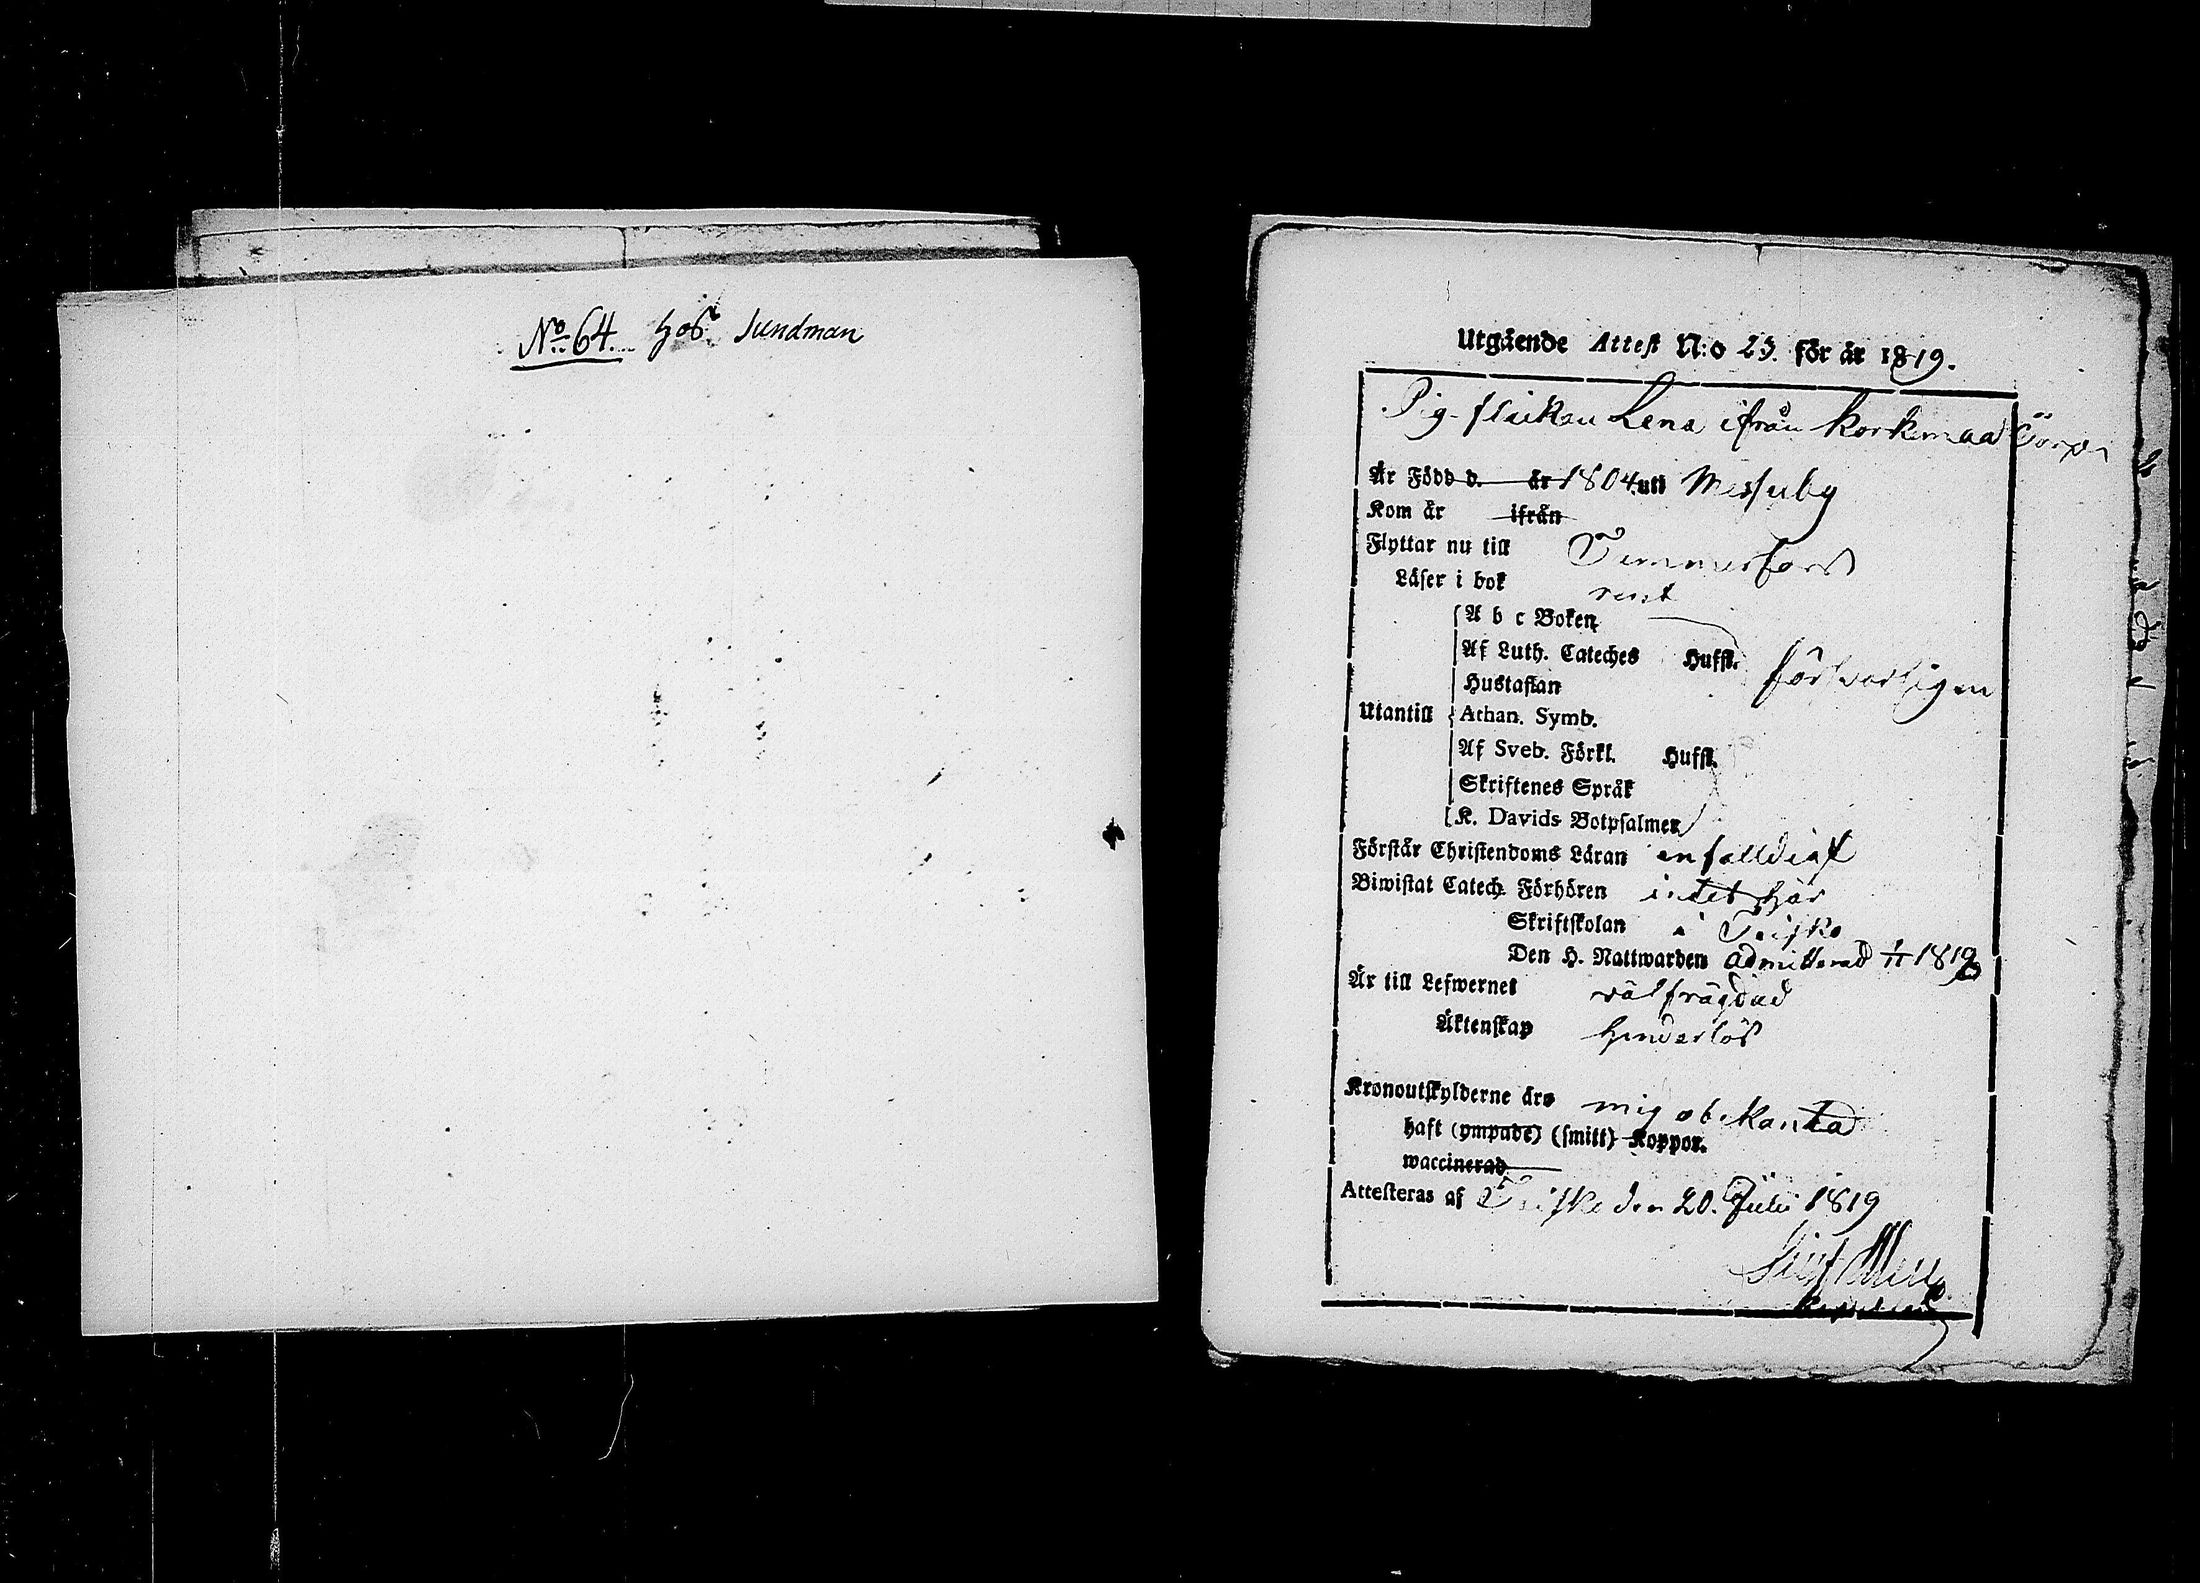 No 64. hos Sundman
Utgående Attest N:o 23. för år 1819.
Pig-flickan Lena ifrån Korkemaa Torp
Är Född d. år 1804 uti Messuby
Kom år ifrån
Flyttar nu till Temmerfors
Läser i bok rent
A b c Boken
Af Luth. Cateches Hufst. försvarligen
Hustaflan
Utantill Athan. Symb.
Af Sveb. Förkl. Hufst.
Skriftenes Språk
K. Davids Botpsalmer
Förstår Christendoms Läran enfalldigt
Biwistat Catech. Förhören intet här
Skriftskolan i Teisko
Den H. Nattwarden admitterad 1/11 1819
Är till Lefwernet välfrägdad
Äktenskap hinderlös
Kronoutskylderne äro mig obekanta
haft (ympade) (smitt) Koppor.
waccinerad
Attesteras af Teisko den 20. Julii 1819